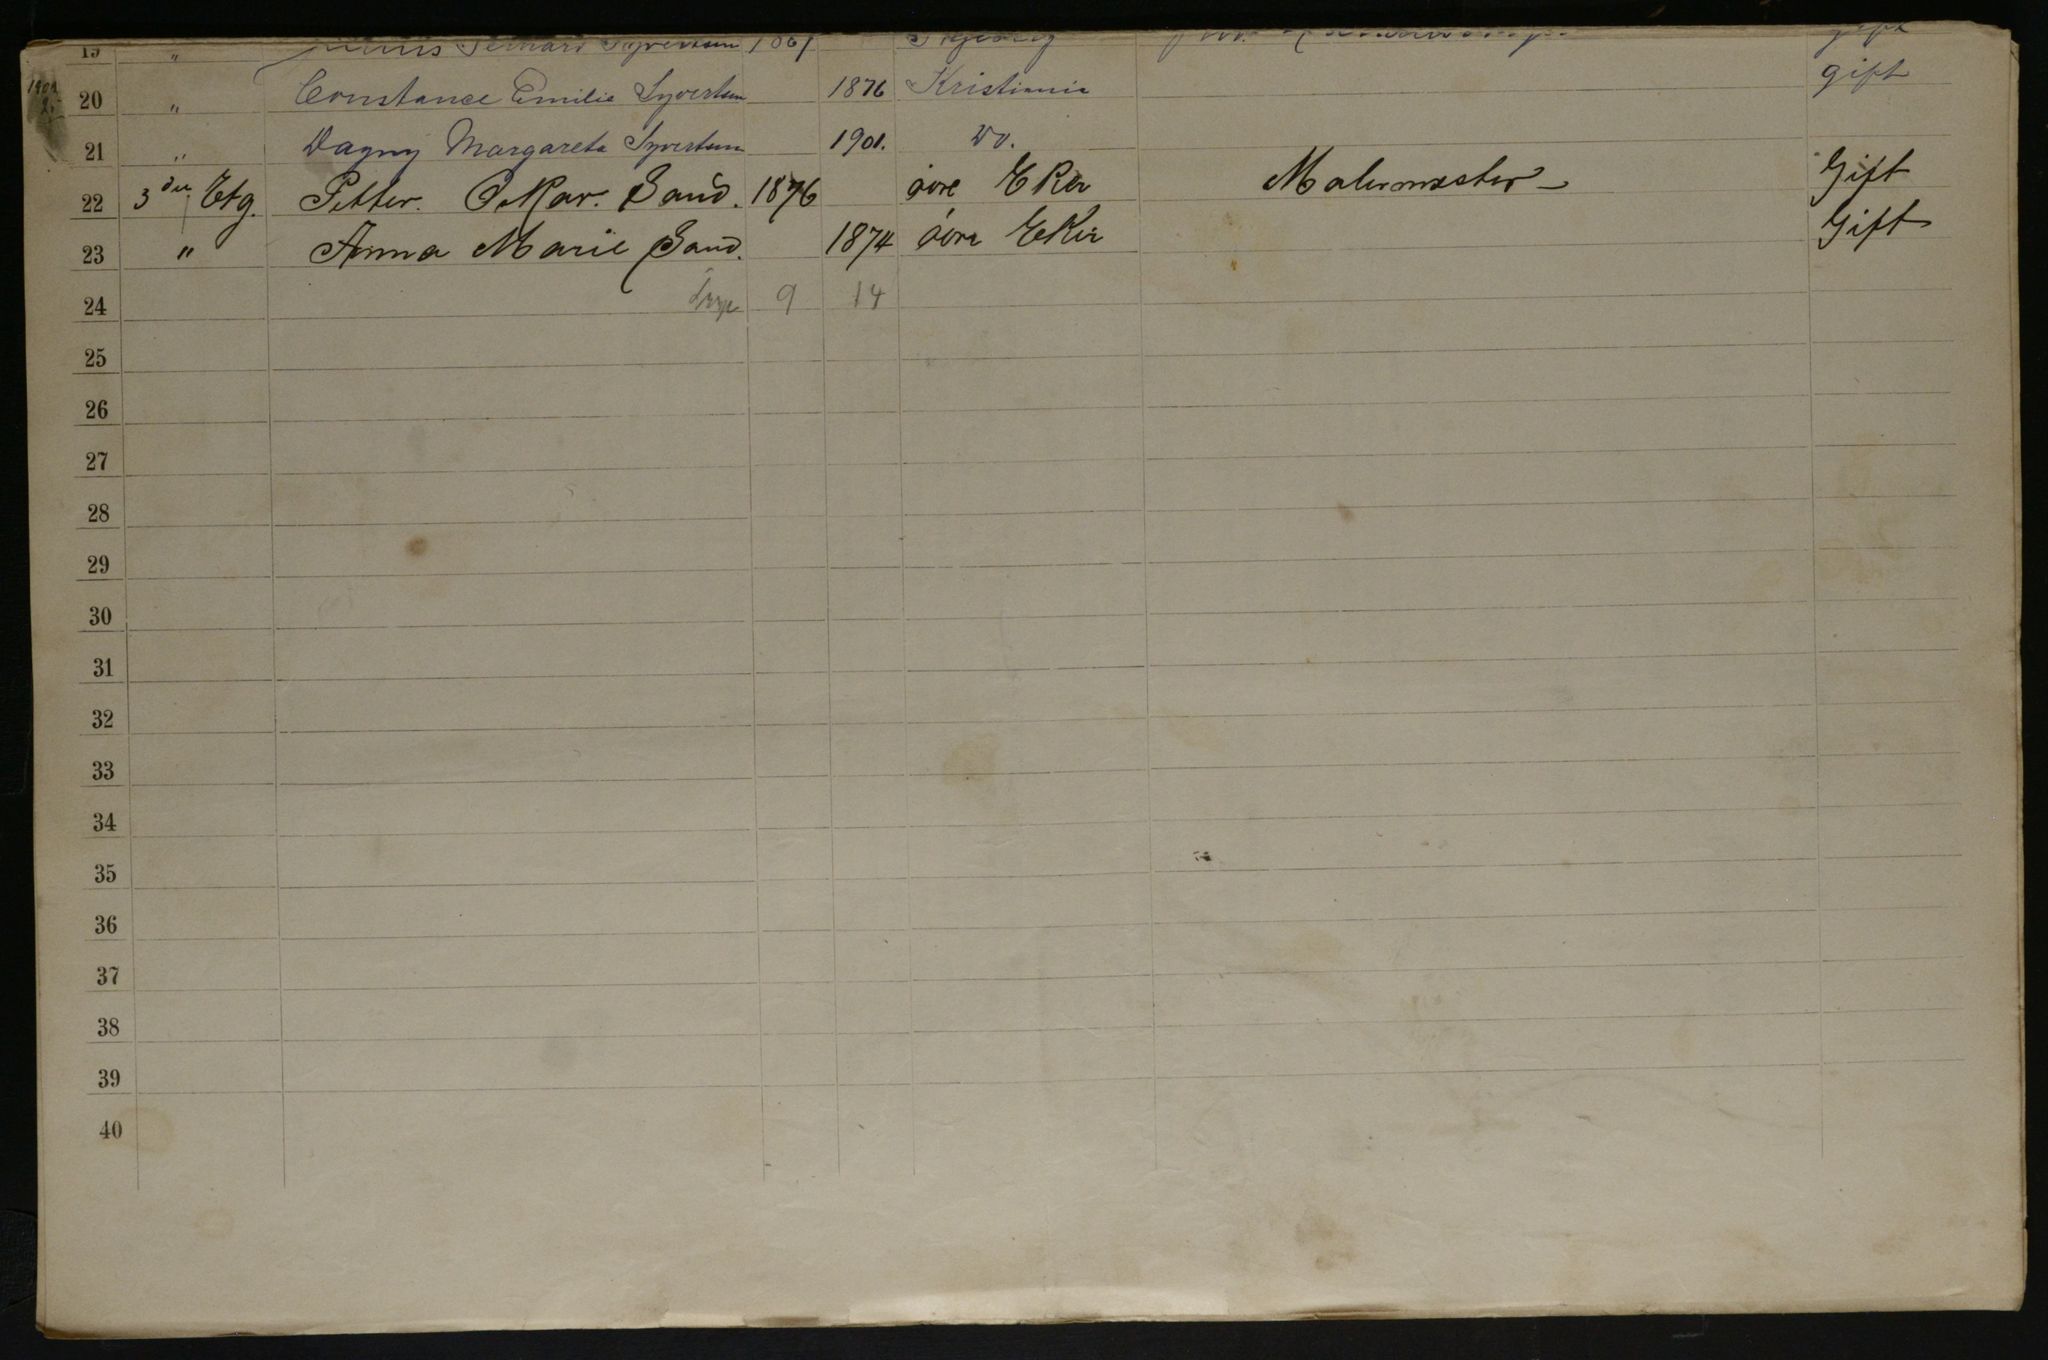 19 " Syvertsen
20 " Constance Emilie Syvertsen 1876 Kristiania gift
21 " Dagny Margareta Syvertsen 1901. Do.
22 3die Etg. Petter. Oskar. Sand. 1876 övre Eker Malermester Gift
23 " Anna Marie Sand. 1874 övre Eker Gift
24 9 14
25
26
27
28
29
30
31
32
33
34
35
36
37
38
39
40